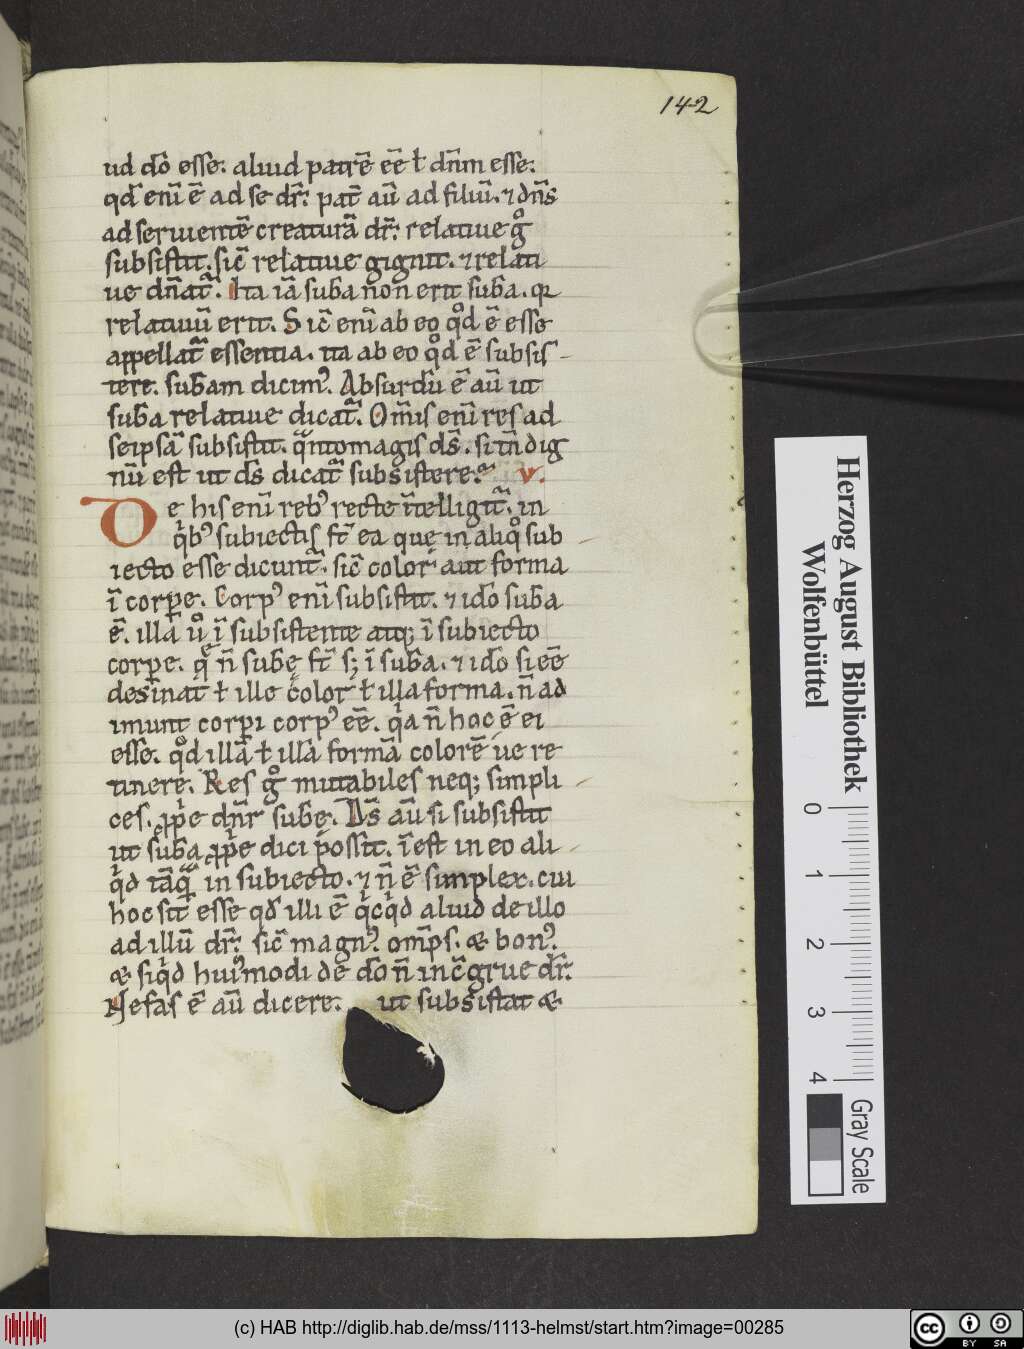 142
ud dō esse. aliud patrē eē ł dn̄m esse.
qd̄ enī ē ad se dr̄. pat̄ aū ad filiū. ⁊ dn̄s
ad seruientē creaturā dr̄. relatiue gͦ
subsistit. sic̄ relatiue gignit. ⁊ relati
ue dn̄at᷑. Ita iā suba non erit suba. qꝛ
relatiuū erit. Sic̄ enī ab eo qͦd ē esse
appellat᷑ essentia. ita ab eo qͦd ē subsis-
tere. subam dicimꝰ. Absurdū ē aū ut
suba relatiue dicat᷑. Om̄is enī res ad
seipsā subsistit. qᷓntomagis ds̄. si tn̄ dig
nū est ut ds̄ dicat᷑ subsistere. v.
De his enī rebꝰ recte īnelligit᷑. in
qͥbꝰ subiectis st̄ ea que in aliqͦ sub
iecto esse dicunt᷑. sic̄ color aut forma
ī corꝑe. Corpꝰ enī subsistit. ⁊ idō suba
ē. illa ů ī subsistente atqꝫ ī subiecto
corꝑe. qᵉ n̄ subę st̄ sꝫ ī suba. ⁊ idō si eē
desinat ł ille color ł illa forma. n̄ ad
imunt corpi corpꝰ eē. qͥa n̄ hoc ē ei
esse. qͦd illā ł illā formā colorē ue re
tinere. Res gͦ mutabiles neqꝫ simpli
ces. ꝓpͥe dn̄r subę. Ds̄ aū si subsistit
ut suba ꝓpͥe dici possit. ī est in eo ali
qͥd tāqᷓ in subiecto. ⁊ n̄ ē simplex. cui
hoc sit esse qd̄ illi ē qͥcqͥd aliud de illo
ad illū dr̄. sic̄ magnꝰ. om̄ps. æ bonꝰ.
æ siqͥd huiꝰmodi de dō n̄ inc̄grue dr̄.
Nefas ē aū dicere. ut subsistat æ
Herzog August Bibliothek
Wolfenbüttel
0
1
2
3
4
Gray Scale
(c) HAB http://diglib.hab.de/mss/1113-helmst/start.htm?image=00285
cc
BY
SA